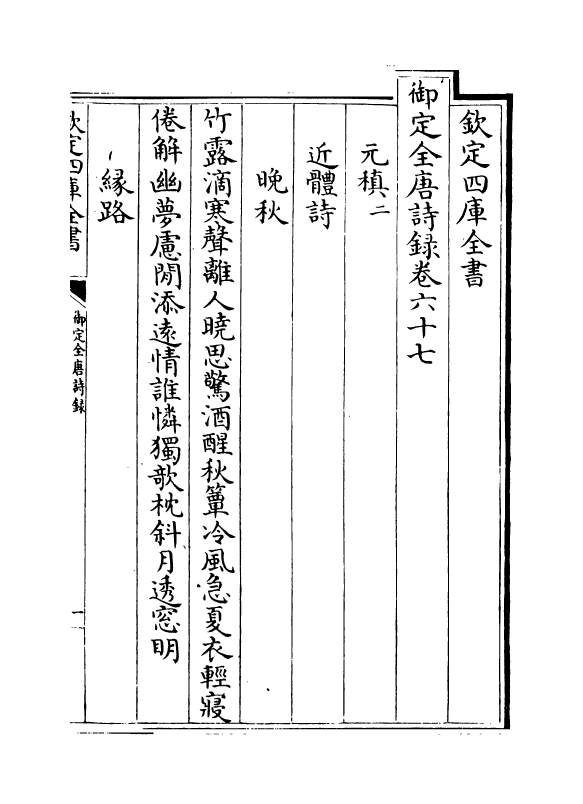 欽定四庫全書
御定全唐詩録卷六十七
元稹二
近體詩
晚秋
竹露滴寒聲離人曉思驚酒醒秋簟冷風急夏衣輕寢
倦解幽夢慮閒添遠情誰憐獨欹枕斜月透窓明
緣路
欽定四庫全書
御定全唐詩録
一